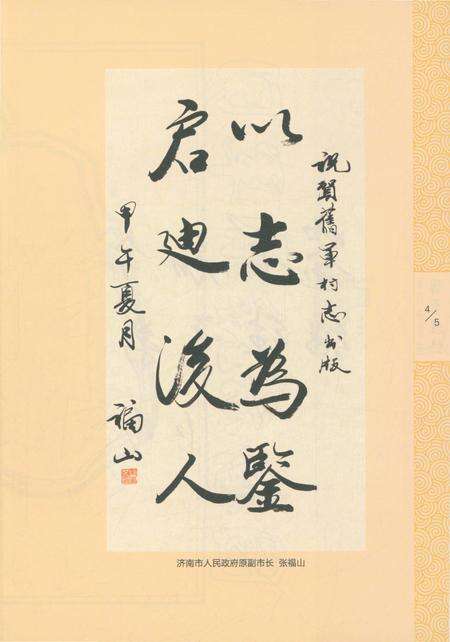 祝贺舊軍村志出版
以志为鉴
启迪後人
甲午夏月
福山
4/5
济南市人民政府原副市长 张福山